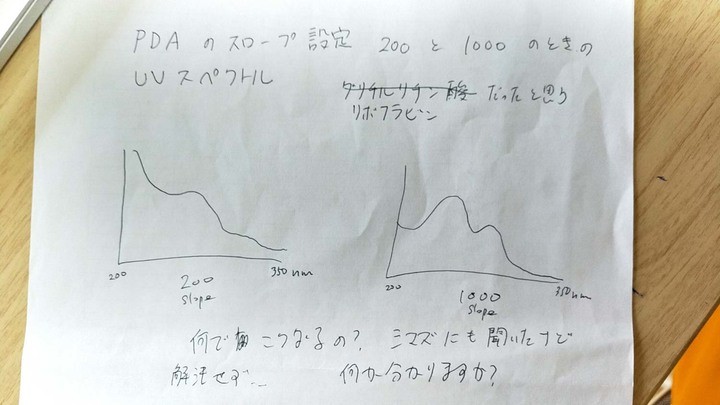 PDA のスロープ設定 200 と 1000 のときの
UV スペクトル
グリチルリチン酸 だったと思う
リボフラビン
200
350nm
200
slope
200
350nm
1000
slope
何で こうなるの? シマズにも聞いたけど
解決せず… 何か分かりますか?